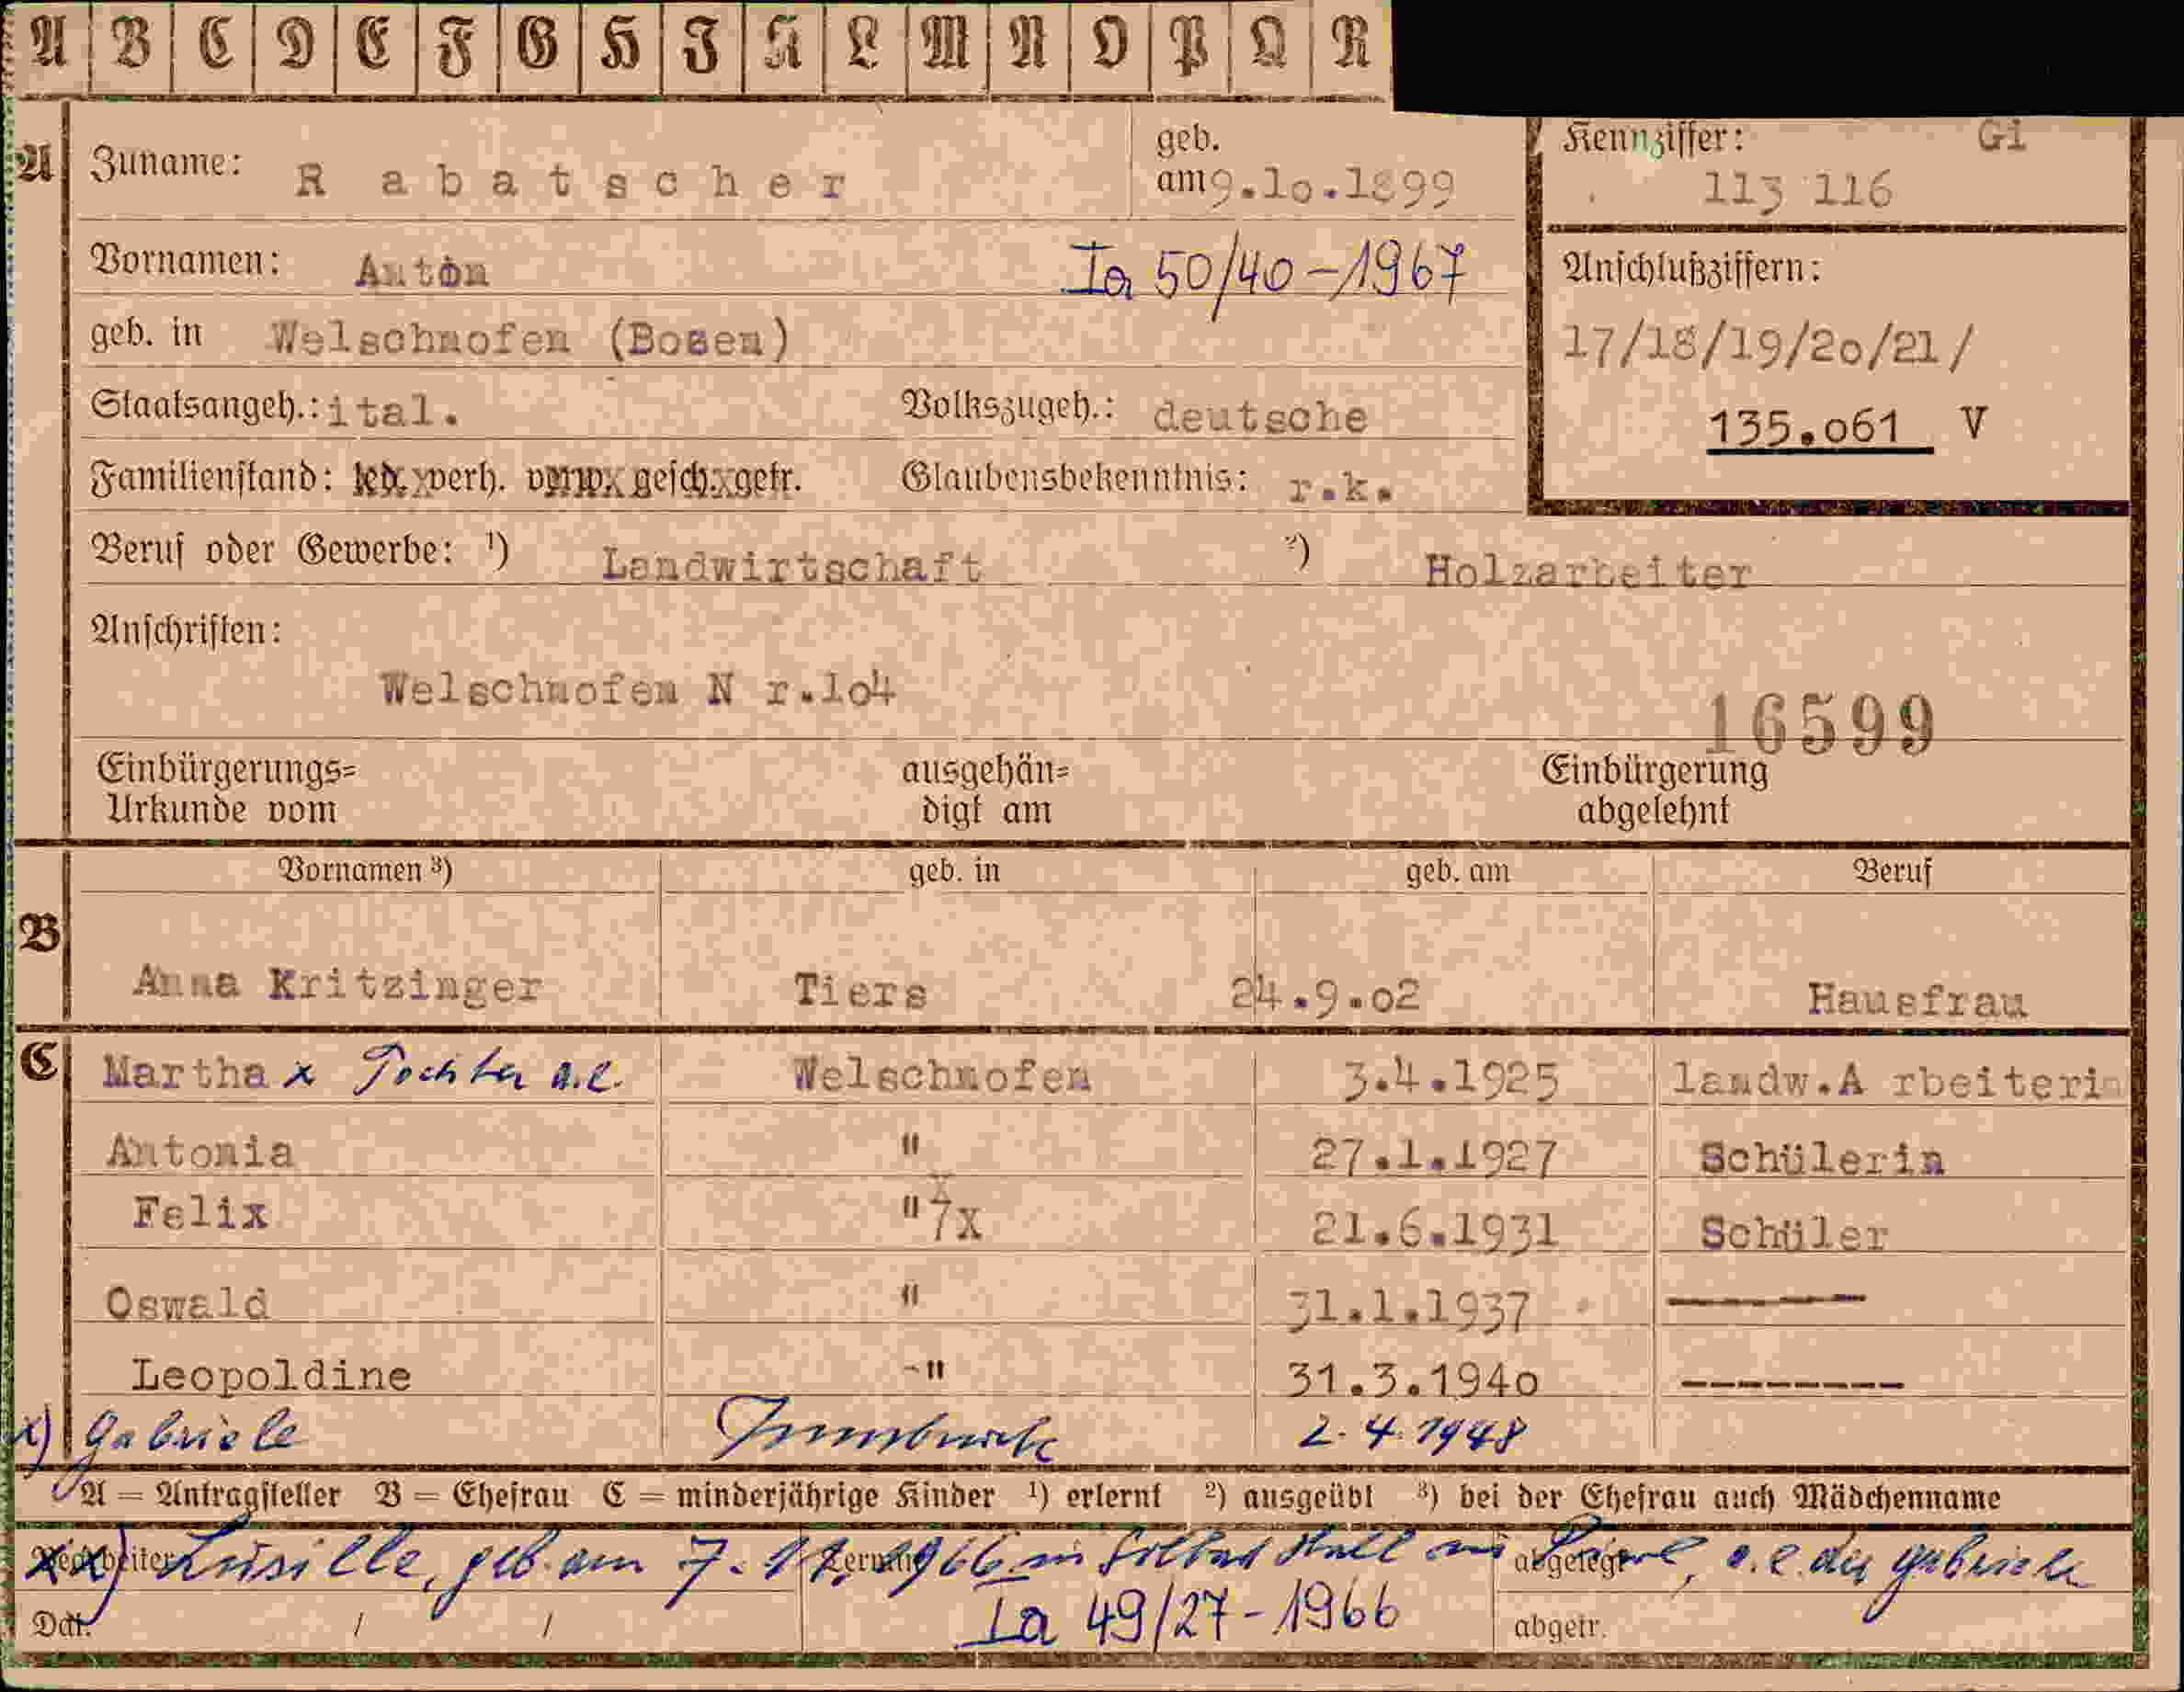 A B C D E F G H J K L M N O P Q R
A Zuname: Rabatscher geb. am 9.10.1899 Kennziffer: Gi
113 116
Vornamen: Anton Ia 50/40-1967 Anschlußziffern:
geb. in Welschnofen (Bozen) 17/18/19/20/21/
Staatsangeh.: ital. Volkszugeh.: deutsche 135.061 V
Familienstand: led. verh. verw. gesch. getr. Glaubensbekenntnis: r.k.
Beruf oder Gewerbe: ¹) Landwirtschaft ²) Holzarbeiter
Anschriften:
Welschnofen N r.104
16599
Einbürgerungs= ausgehän= Einbürgerung
Urkunde vom digt am abgelehnt
Vornamen ³) geb. in geb. am Beruf
B
Anna Kritzinger Tiers 24.9.02 Hausfrau
C Martha x Tochter a.e. Welschnofen 3.4.1925 landw.A rbeiterin
Antonia " 27.1.1927 Schülerin
Felix " 21.6.1931 Schüler
Oswald " 31.1.1937 ————
Leopoldine -" 31.3.1940 -------
x) Gabriele Innsbruck 2.4.1948
A = Antragsteller B = Ehefrau C = minderjährige Kinder ¹) erlernt ²) ausgeübt ³) bei der Ehefrau auch Mädchenname
xx) geb. am 7. 1966 in Solbad Hall in Tirol, a.e. der Gabriele
Bearbeiter abgelegt
Dat. / / Ia 49/27-1966 abgetr.